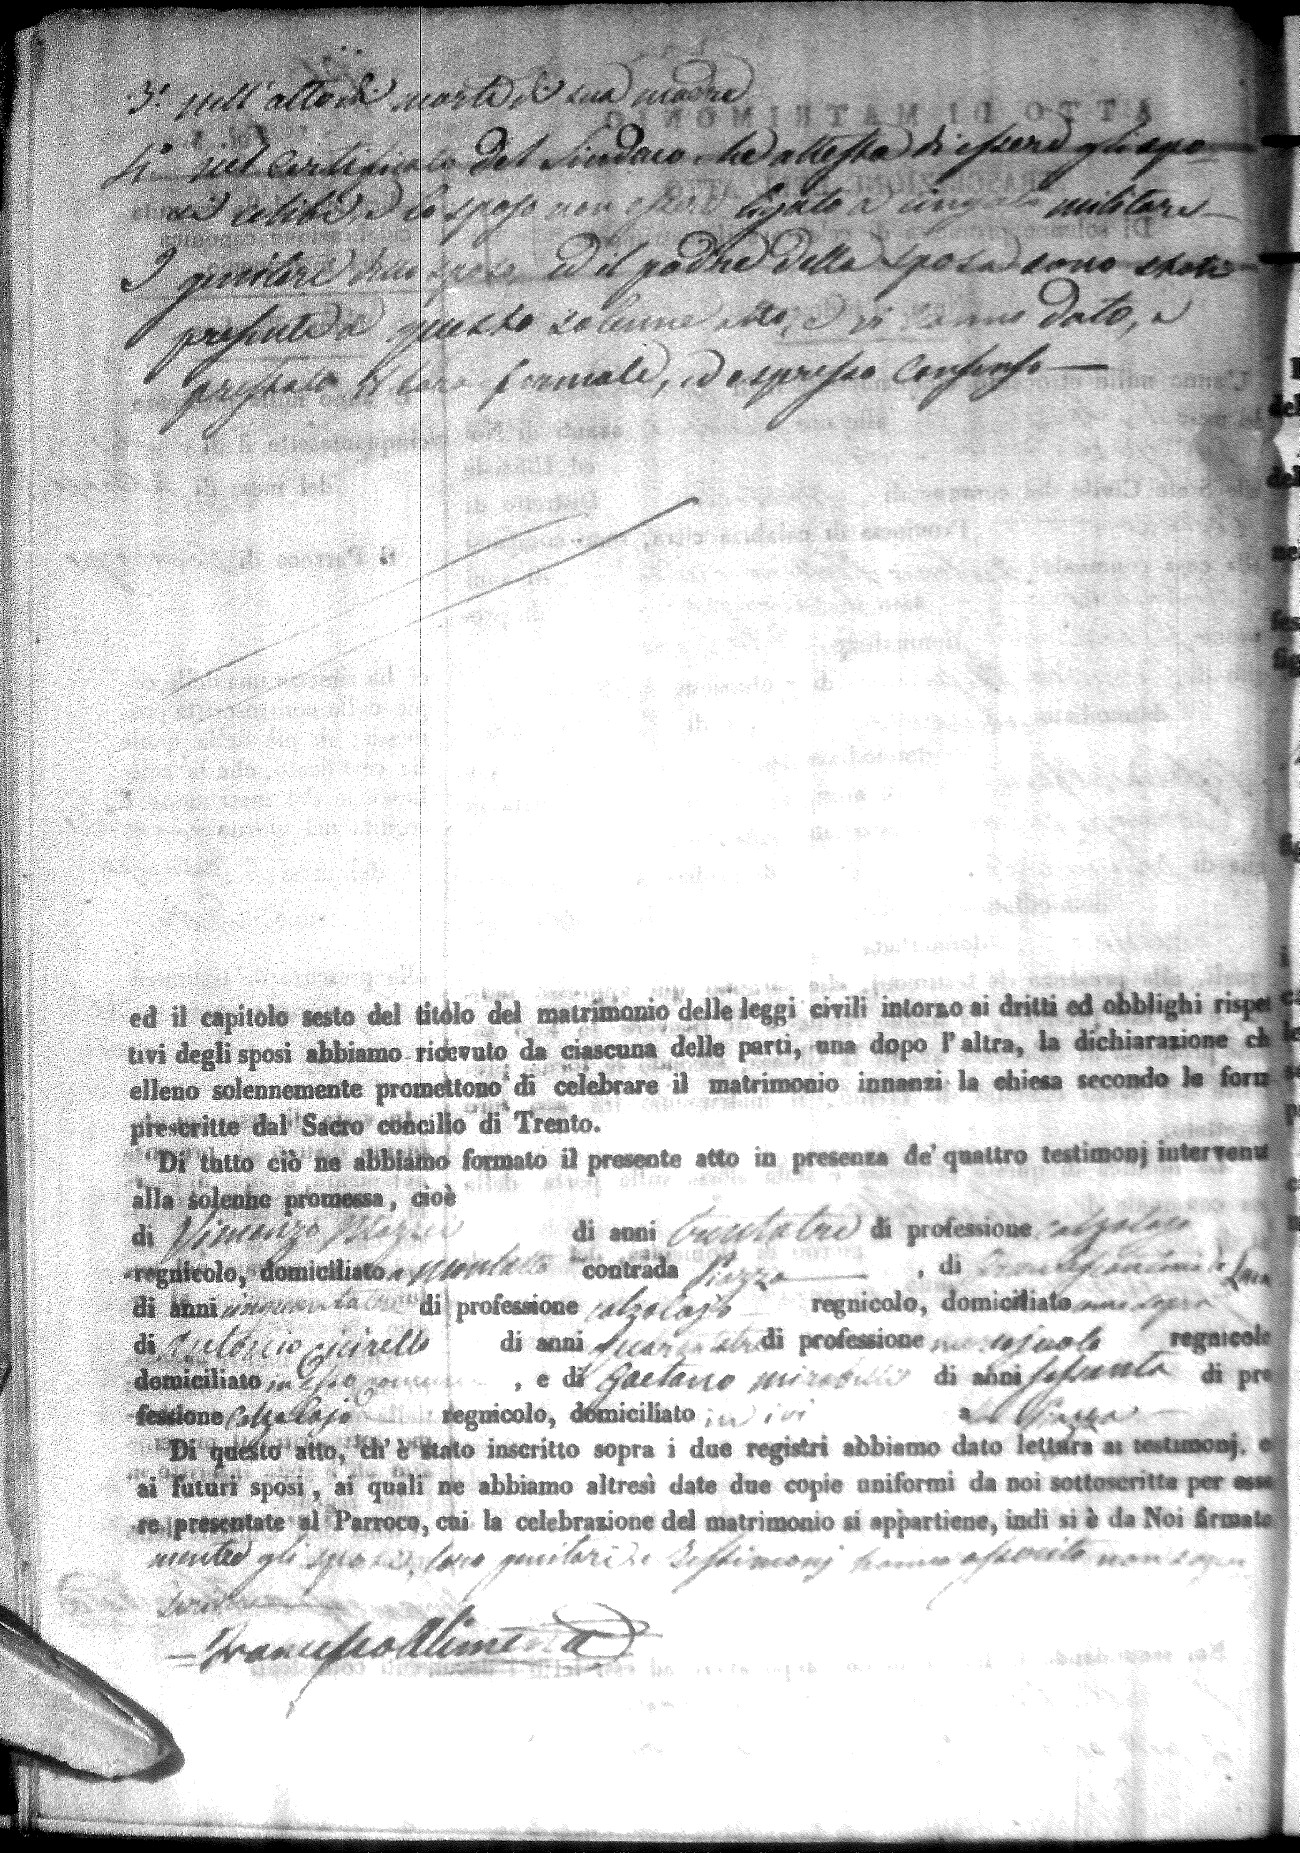 3.° Nell'atto di morte di sua madre
4.° Nel certificato del Sindaco che attesta di essere gli spo
si celibi, e lo sposo non essere legato a cingolo militare
I genitori dello sposo ed il padre della sposa sono stati
presenti a questo solenne atto, e vi hanno dato, e
prestato il loro formale, ed espresso consenso
ed il capitolo sesto del titolo del matrimonio delle leggi civili intorno ai dritti ed obblighi rispet
tivi degli sposi abbiamo ricevuto da ciascuna delle parti, una dopo l'altra, la dichiarazione ch
elleno solennemente promettono di celebrare il matrimonio innanzi la chiesa secondo le form
prescritte dal Sacro concilio di Trento.
Di tutto ciò ne abbiamo formato il presente atto in presenza de' quattro testimonj intervenu
alla solenne promessa, cioè
di Vincenzo di anni trentatre di professione calzolaro
regnicolo, domiciliato a Montalto contrada Piazza, di
di anni di professione calzolajo regnicolo, domiciliato come sopra
di Antonio Cicirello di anni di professione regnicolo
domiciliato in, e di Gaetano Mirabelli di anni sessanta di pro
fessione Calzolajo regnicolo, domiciliato in ivi a la Piazza
Di questo atto, ch'è stato inscritto sopra i due registri abbiamo dato lettura ai testimonj, e
ai futuri sposi, ai quali ne abbiamo altresì date due copie uniformi da noi sottoscritte per esse
re presentate al Parroco, cui la celebrazione del matrimonio si appartiene, indi si è da Noi firmato
mentre gli sposi, loro genitori e Testimonj hanno asserito non saper
scrivere
Francesco Alimena